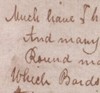 Much have I
And many
Round ma
Which Bards